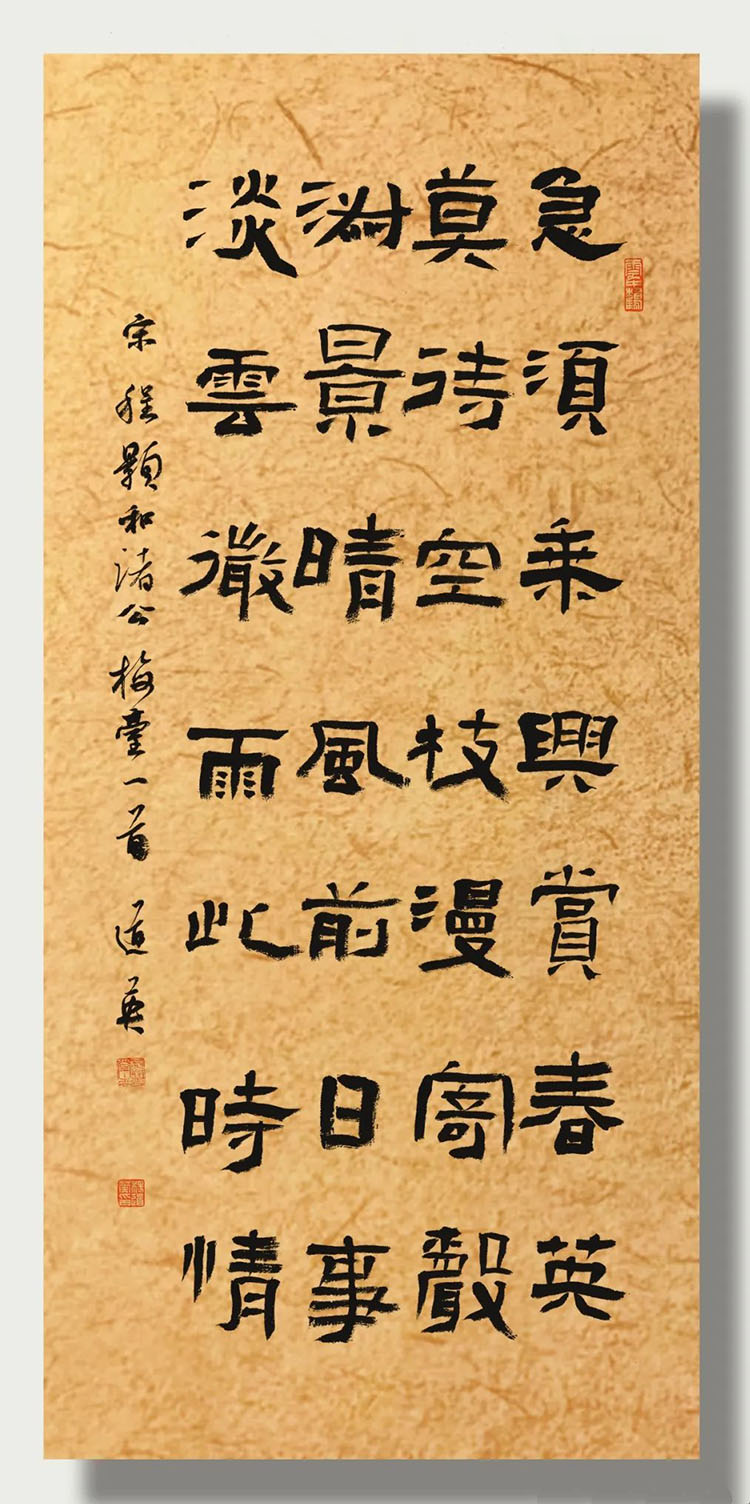 急須乘興賞春英
莫待空枝漫寄聲
淑景晴風前日事
淡雲微雨此時情
宋程顥和諸公梅臺一首 道英